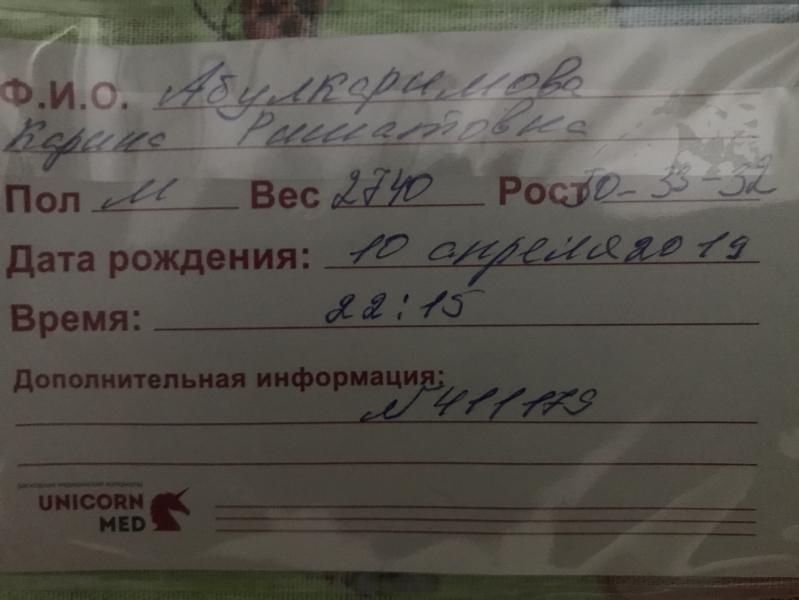 Ф.И.О. Абулкаримова
Карина Ришатовна
Пол М Вес 2740 Рост 50-33-32
Дата рождения: 10 апреля 2019
Время: 22:15
Дополнительная информация:
№411179
расходные медицинские материалы
UNICORN
MED